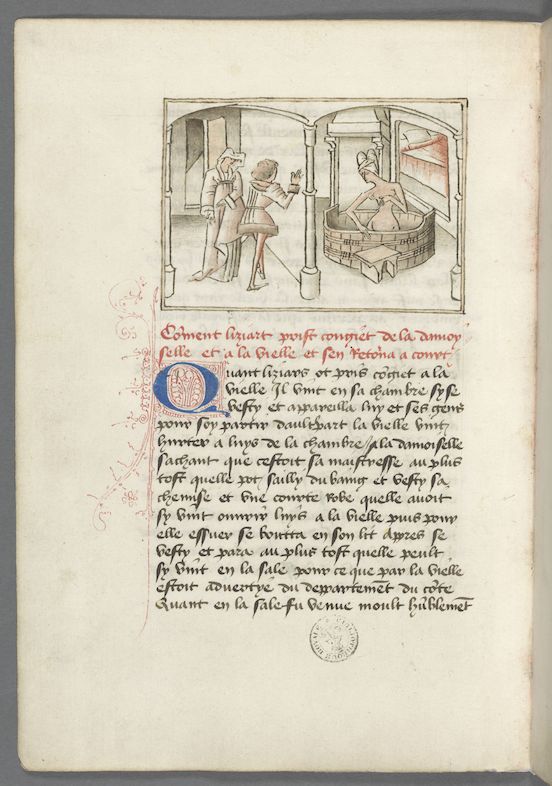 Cõment liziart prist congiet de la damoy
selle et a la vielle et sen Retõna a court
Quant liziars ot pris cõgiet a la
vielle Il vint en sa chambre sy se
vesty et appareilla luy et ses gens
pour soy partir daultrepart la vielle vint
hurter a luys de la chambre / a la damoiselle
sachant que cestoit sa maistresse au plus
tost quelle pot sailly du baing et vesty sa
chemise et vne courte robe quelle auoit
sy vint ouurir luys a la vielle puis pour
elle essuer se bouta en son lit apres se
vesty et para au plus tost quelle peult
sy vint en la sale pour ce que par la vielle
estoit aduertye du departemẽt du cõte
Quant en la sale fu venue moult hũblemẽt